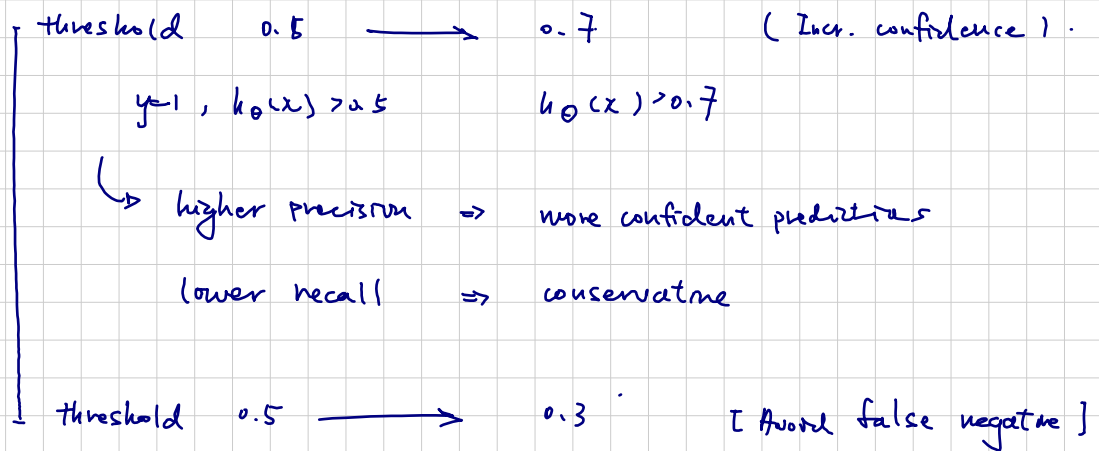 threshold 0.5 → 0.7 ( Incr. confidence ) .
y=1 , hθ(x) > 0.5 hθ(x) > 0.7
↳ higher precision ⇒ more confident predictions
lower recall ⇒ conservative
threshold 0.5 → 0.3 [ Avoid false negative ]